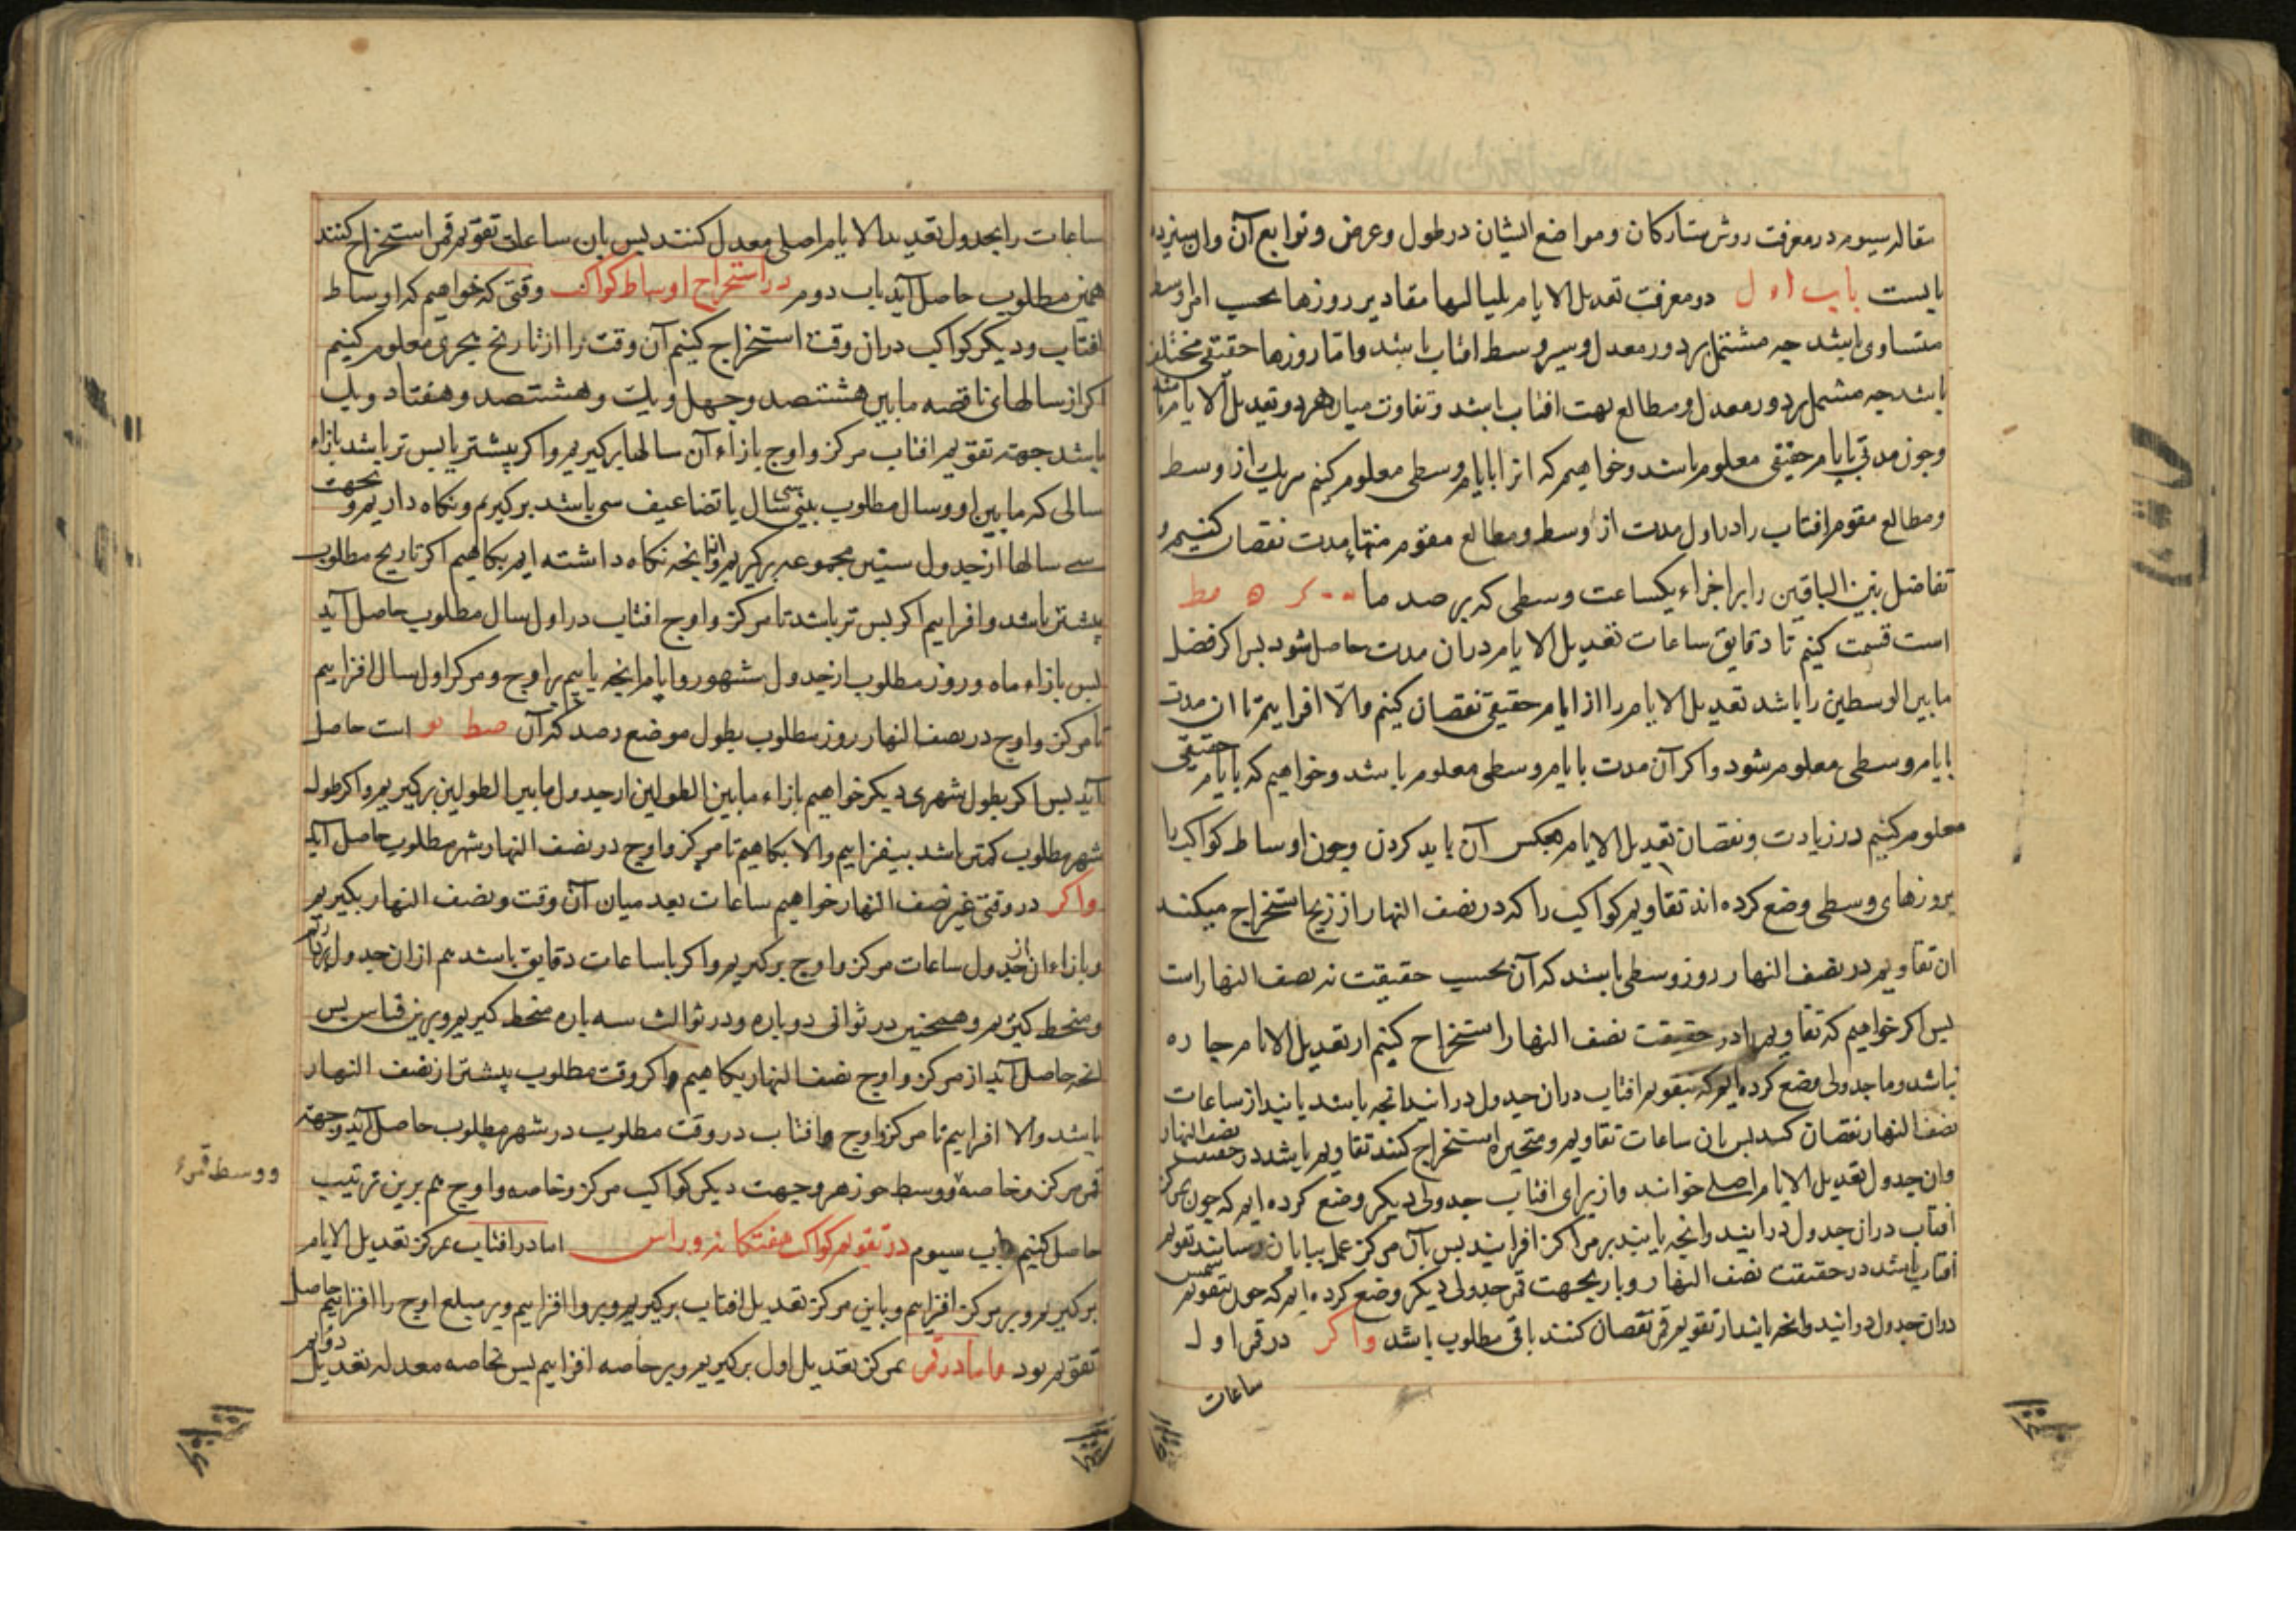 مقاله سیوم در معرفت روش ستارکان و مواضع ایشان در طول و عرض و توابع آن وان سیزده
بابست باب اول در معرفت تعدیل الایام بلیالیها مقادیر روزها بحسب امر اوسط
متساوی باشد چه مشتمل بر دور معدل و سیر وسط افتاب باشد واما روزهاء حقیقی مختلف
باشد چه مشتمل بر دور معدل و مطالع بهت افتاب باشد و تفاوت میان هر دو تعدیل الایام باشد
وجون مدتی بایام حقیقی معلوم باشد وخواهیم که انرا بایام وسطی معلوم کنیم هریک از وسط
ومطالع مقوم افتاب را در اول مدت از وسط و مطالع مقوم منتهاء مدت نقصان کنیم و
تفاضل بین الباقیین را بر اجزاء یکساعت وسطی که برصد ما
است قسمت کنیم تا دقایق ساعات تعدیل الایام دران مدت حاصل شود بس اکر فضل
مابین الوسطین را باشد تعدیل الایام را از ایام حقیقی نقصان کنیم والا افزاییم تا ان مدت
بایام وسطی معلوم شود واکر آن مدت بایام وسطی معلوم باشد وخواهیم که بایام حقیقی
معلوم کنیم در زیادت و نقصان تعدیل الایام بعکس آن باید کردن وجون اوساط کواکب را
بروزهای وسطی وضع کرده اند تقاویم کواکب را که در نصف النهار از زیجها استخراج میکنند
ان تقاویم در نصف النهار روز وسطی باشد که آن بحسب حقیقت نه نصف النهار است
بس اکر خواهیم که تقاویم را در حقیقت نصف النهار استخراج کنیم از تعدیل الایام جاره
نباشد وما جدولی وضع کرده ایم که بتقویم افتاب دران جدول درایند انچه یابند از ساعات
نصف النهار نقصان کنند بس بان ساعات تقاویم متحیره استخراج کنند تقاویم باشد در حقیقت نصف النهار
وان جدول تعدیل الایام اصلی خوانند واز برای افتاب جدولی دیکر وضع کرده ایم که جون بمرکز
افتاب دران جدول درایند وانچه یابند بر مراکز افزایند بس بآن مرکز عمل بپایان رسانند تقویم
افتاب باشد در حقیقت نصف النهار وباز بجهت قمر جدولی دیکر وضع کرده ایم که جون بتقویم شمس
دران جدول درایند وانچه یابند از تقویم قمر نقصان کنند باقی مطلوب باشد واکر در قمر اول
ساعات
ساعات را بجدول تعدیل الایام اصلی معدل کنند بس بان ساعات تقویم قمر استخراج کنند
همین مطلوب حاصل آید باب دوم در استخراج اوساط کواکب وقتی که خواهیم که اوساط
افتاب ودیکر کواکب دران وقت استخراج کنیم آن وقت را از تاریخ هجری معلوم کنیم
اکر از سالهای ناقصه مابین هشتصد وجهل ویک وهشتصد وهفتاد ویک
باشد جهت تقویم افتاب مرکز واوج بازاء آن سالها برکیریم واکر پیشتر یا بس تر باشد بازاء
سالی که مابین او وسال مطلوب بینی سی سال یا تضاعیف سی باشد برکیریم ونکاه داریم و بجهت
سی سالها از جدول سنین مجموعه برکیریم واز انچه نکاه داشته ایم بکاهیم اکر تاریخ مطلوب
پیشتر باشد وافزاییم اکر بس تر باشد تا مرکز واوج افتاب در اول سال مطلوب حاصل آید
بس بازاء ماه وروز مطلوب از جدول شهور وایام انچه یابیم بر اوج ومرکز اول سال افزاییم
تا مرکز واوج در نصف النهار روز مطلوب بطول موضع رصد که آن صط نو است حاصل
آید بس اکر بطول شهری دیکر خواهیم بازاء مابین الطولین از جدول مابین الطولین برکیریم واکر طول
شهر مطلوب کمتر باشد بیفزاییم والا بکاهیم تا مرکز واوج در نصف النهار شهر مطلوب حاصل آید
واکر در وقتی غیر نصف النهار خواهیم ساعات بعد میان آن وقت ونصف النهار بکیریم
وبازاء ان از جدول ساعات مرکز واوج برکیریم واکر باساعات دقایق باشد هم ازان جدول
ومنحط کیریم وهمجنین در ثوانی دوباره ودر ثوالث سه باره منحط کیریم وبرین قیاس بس
انچه حاصل آید از مرکز واوج نصف النهار بکاهیم اکر وقت مطلوب پیشتر از نصف النهار
باشد والا افزاییم تا مرکز واوج افتاب در وقت مطلوب در شهر مطلوب حاصل آید وجهة
قمر مرکز وخاصه ووسط جوزهر وجهت دیکر کواکب مرکز وخاصه واوج هم برین ترتیب
ووسط قمر
حاصل کنیم باب سیوم در تقویم کواکب هفتکانه وراس اما در افتاب بمرکز تعدیل الایام
برکیریم وبر مرکز افزاییم وباین مرکز تعدیل افتاب برکیریم وبرو افزاییم وبر مبلغ اوج را افزاییم حاصل
تقویم بود واما در قمر بمرکز تعدیل اول برکیریم وبر خاصه افزاییم بس بخاصه معدله تعدیل دوم